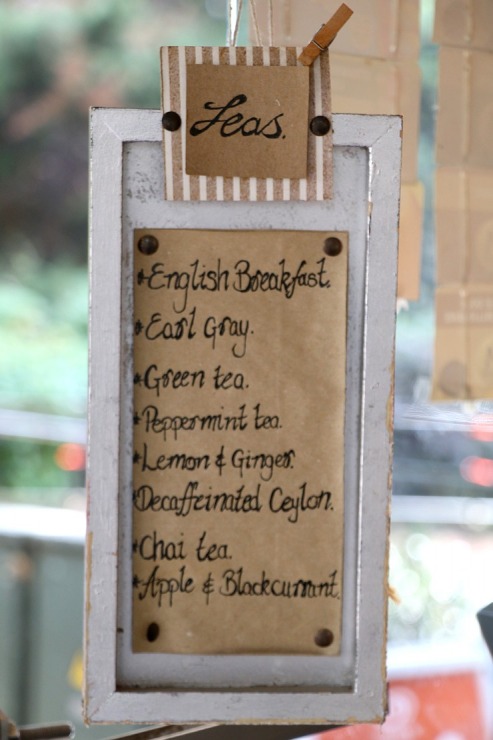 Teas.
*English Breakfast.
*Earl Gray.
*Green tea.
*Peppermint tea.
*Lemon & Ginger.
*Decaffeinated Ceylon.
*Chai tea.
*Apple & Blackcurrant.